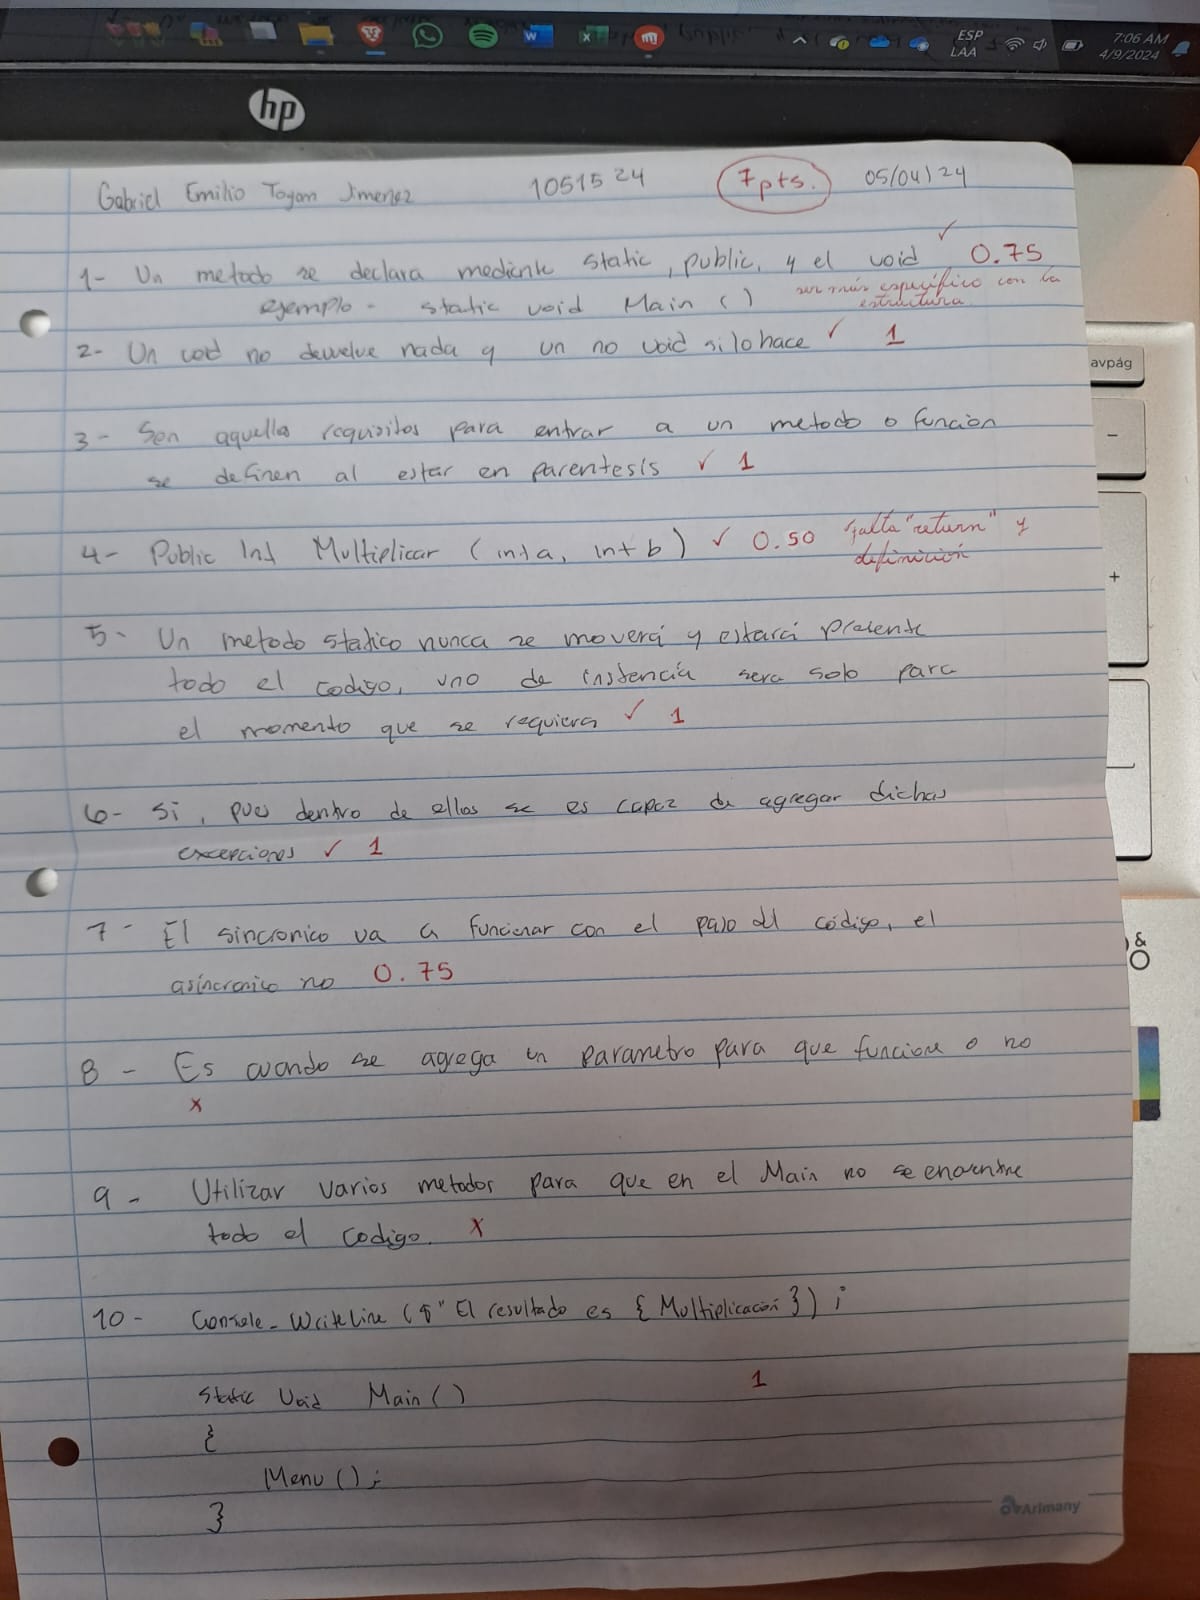 ESP
LAA
7:06 AM
4/9/2024
hp
Gabriel Emilio Toyom Jimenez 1051524 7pts. 05/04/24
1- Un metodo se declara mediente static, public, y el void ✓ 0.75
ejemplo - static void Main () ser más específico con la
estructura
2- Un void no devuelve nada y un no void si lo hace ✓ 1
avpág
3- Son aquellos requisitos para entrar a un metodo o función
se definen al estar en parentesis ✓ 1
4- Public Int Multiplicar (int a, int b) ✓ 0.50 falta "return" y
definición
5- Un metodo statico nunca se moverá y estará presente
todo el codigo, uno de instencia sera solo para
el momento que se requiera ✓ 1
6- Si, pues dentro de ellos se es capaz de agregar dichas
excepciones ✓ 1
7- El sincronico va a funcionar con el paso del código, el
asincronico no 0.75
8- Es cuando se agrega un parametro para que funcione o no
x
9- Utilizar varios metodos para que en el Main no se encuentre
todo el codigo. x
10- Console.WriteLine ($"El resultado es {Multiplicación});
Static Void Main () 1
{
Menu ();
}
Arimany